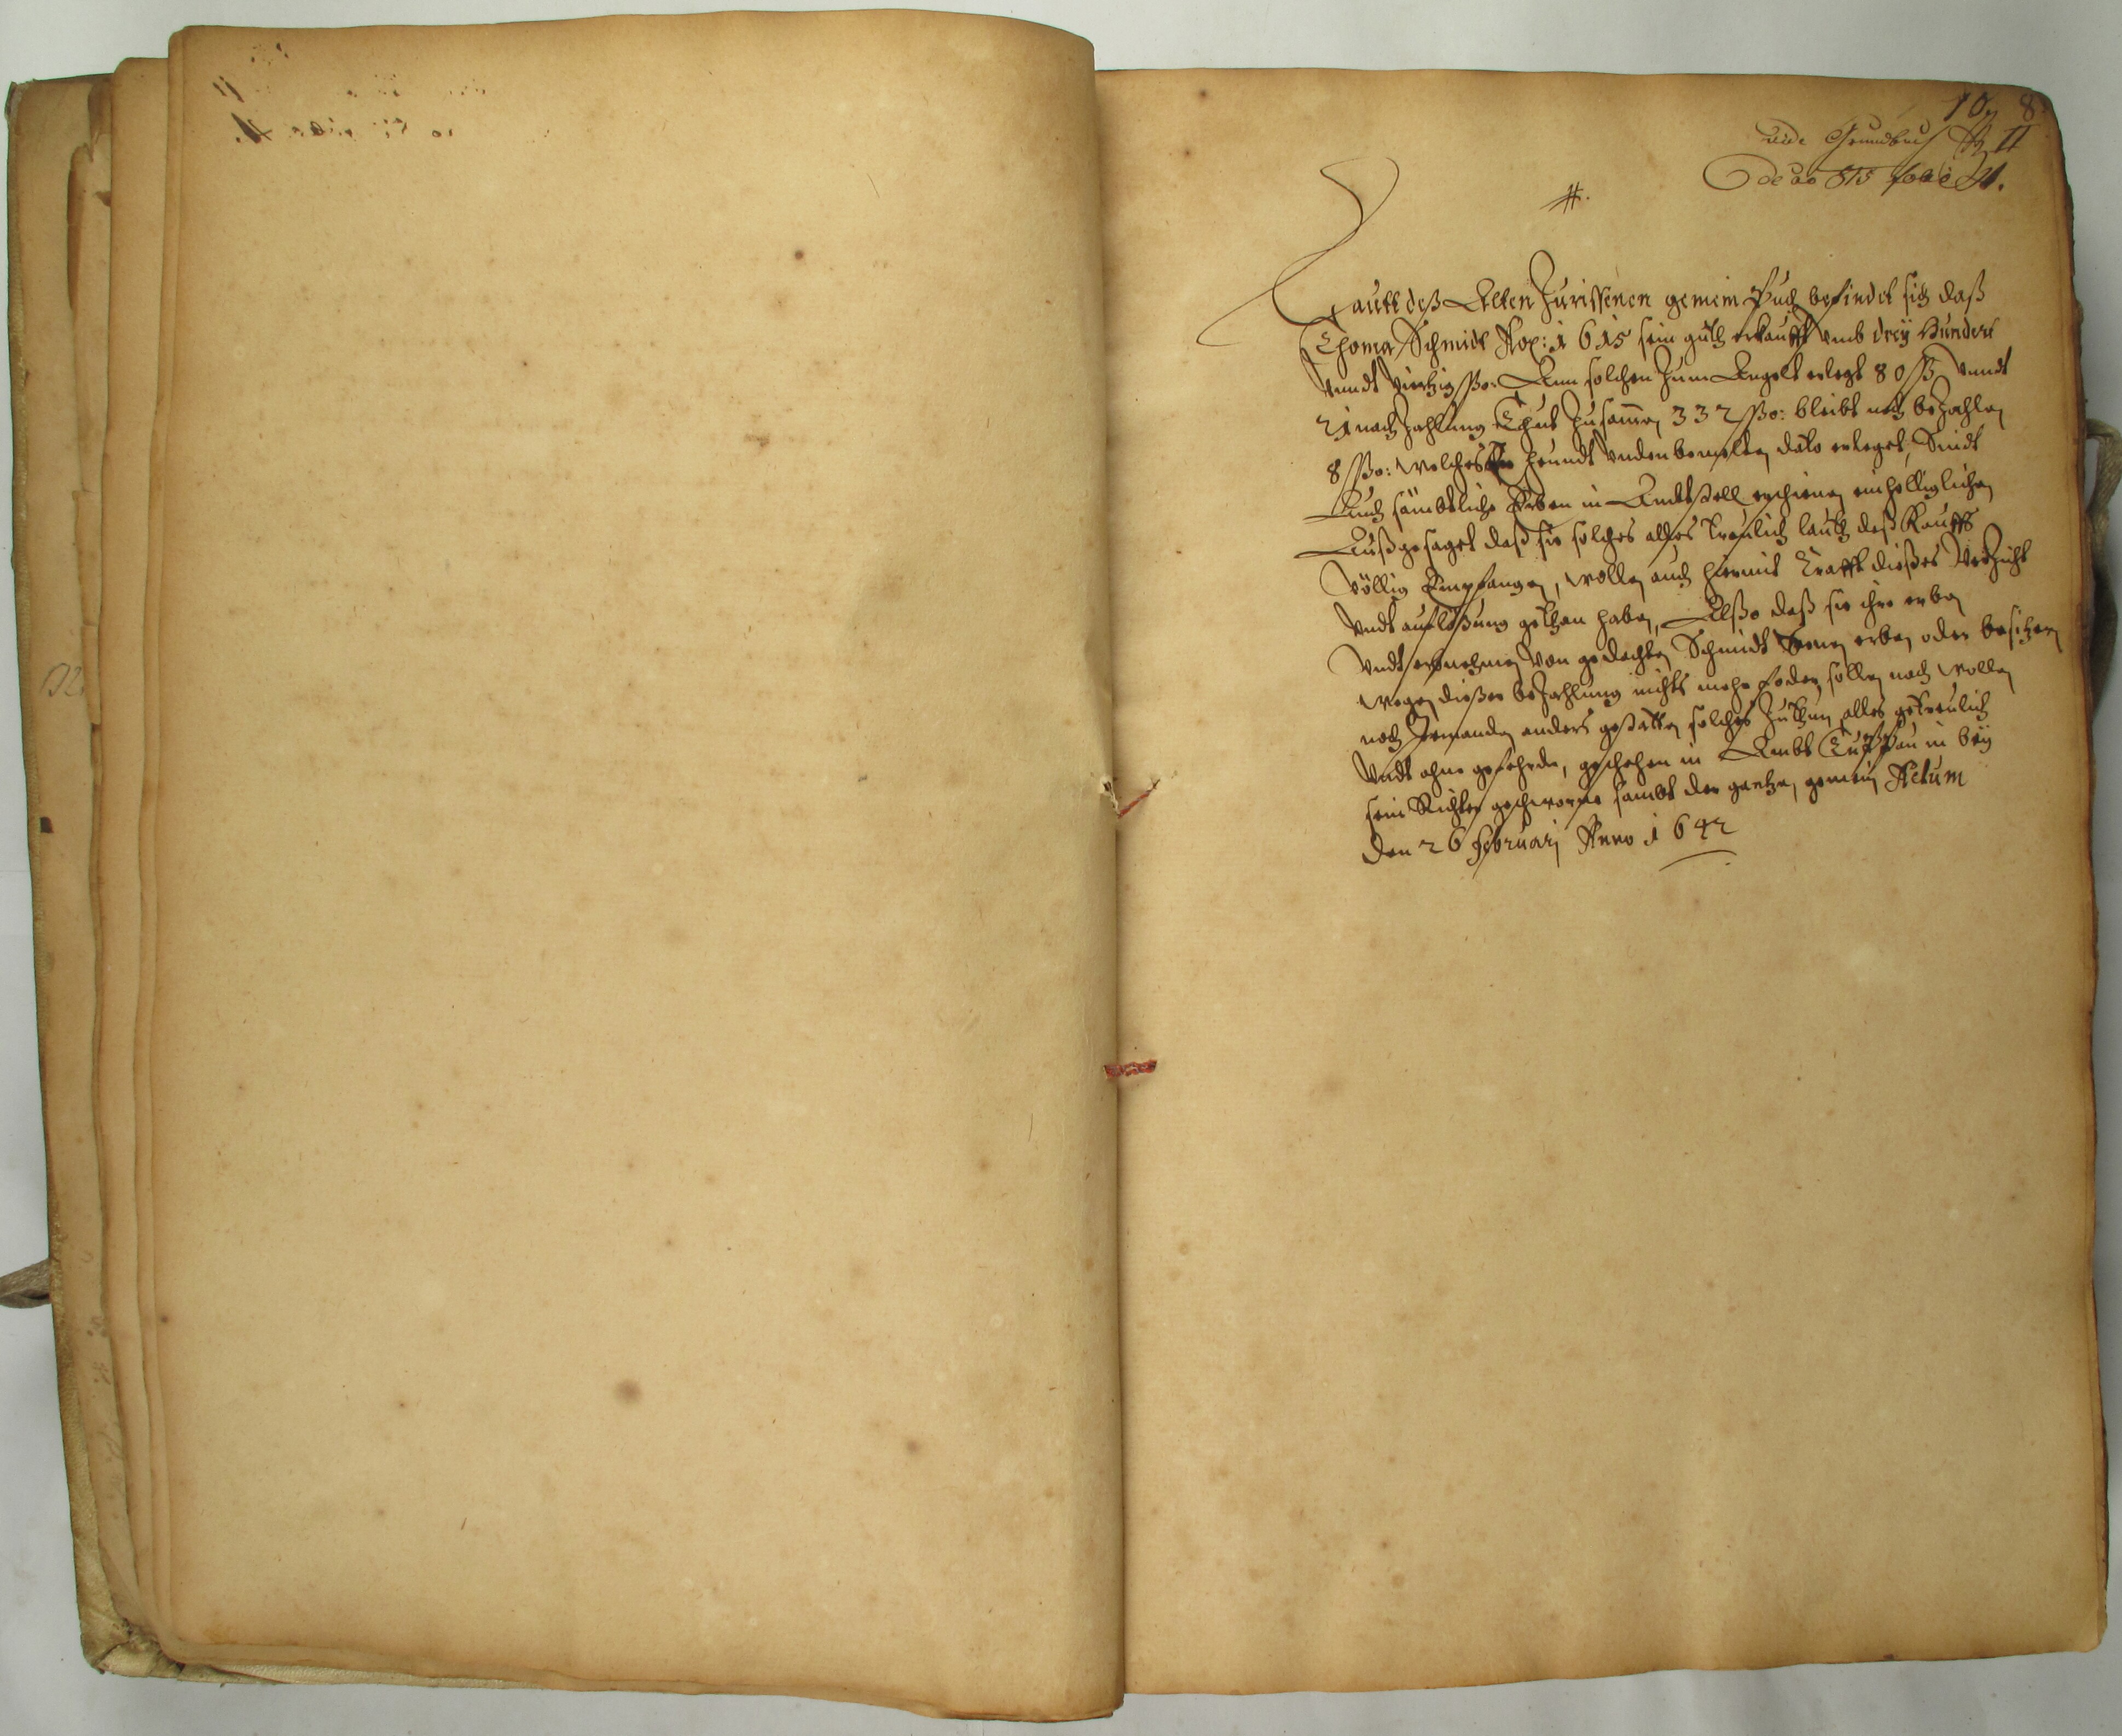 10. 8
vide Grundbuch II
de ao 815 folio 21.
#.
Lautt deß Alten Zurissenen gemein Puch befindet sich daß
Thoma Schmidt Aox: 1615 sein guth erkaufft vmb dreÿ Hundert
Vnndt Viertzig ßo: Ann solchen zum Angelt erlegt 80 ß Vnndt
21 nach Zahlung Thut Zusamen 332 ßo: bleibt noch bezahlen
8 ßo: welches heundt vndenbemelten dato erleget, Sindt
Auch sämbtliche Erben in Ambtstell erschienen einhelliglichen
Außgesaget daß sie solches alles treulich lauth deß Kauffs
Völlig Empfangen, wollen auch hiermit Krafft dießes Verzicht
Vndt auflaßung gethan haben, Alßo daß sie ihre erben
Vndt erbnehmen von gedachten Schmidt Seinen erben oder besitzern
wegen dießer bezahlung nichts mehr fodern sollen noch wollen
noch Jemanden anders gestatten solches zuthun alles getreulich
Vndt ohne gefehrde, geschehen in Ambt in beÿ
sein Richter geschworne sambt der gantzen gemein Actum
den 26 Februarj Anno 1642